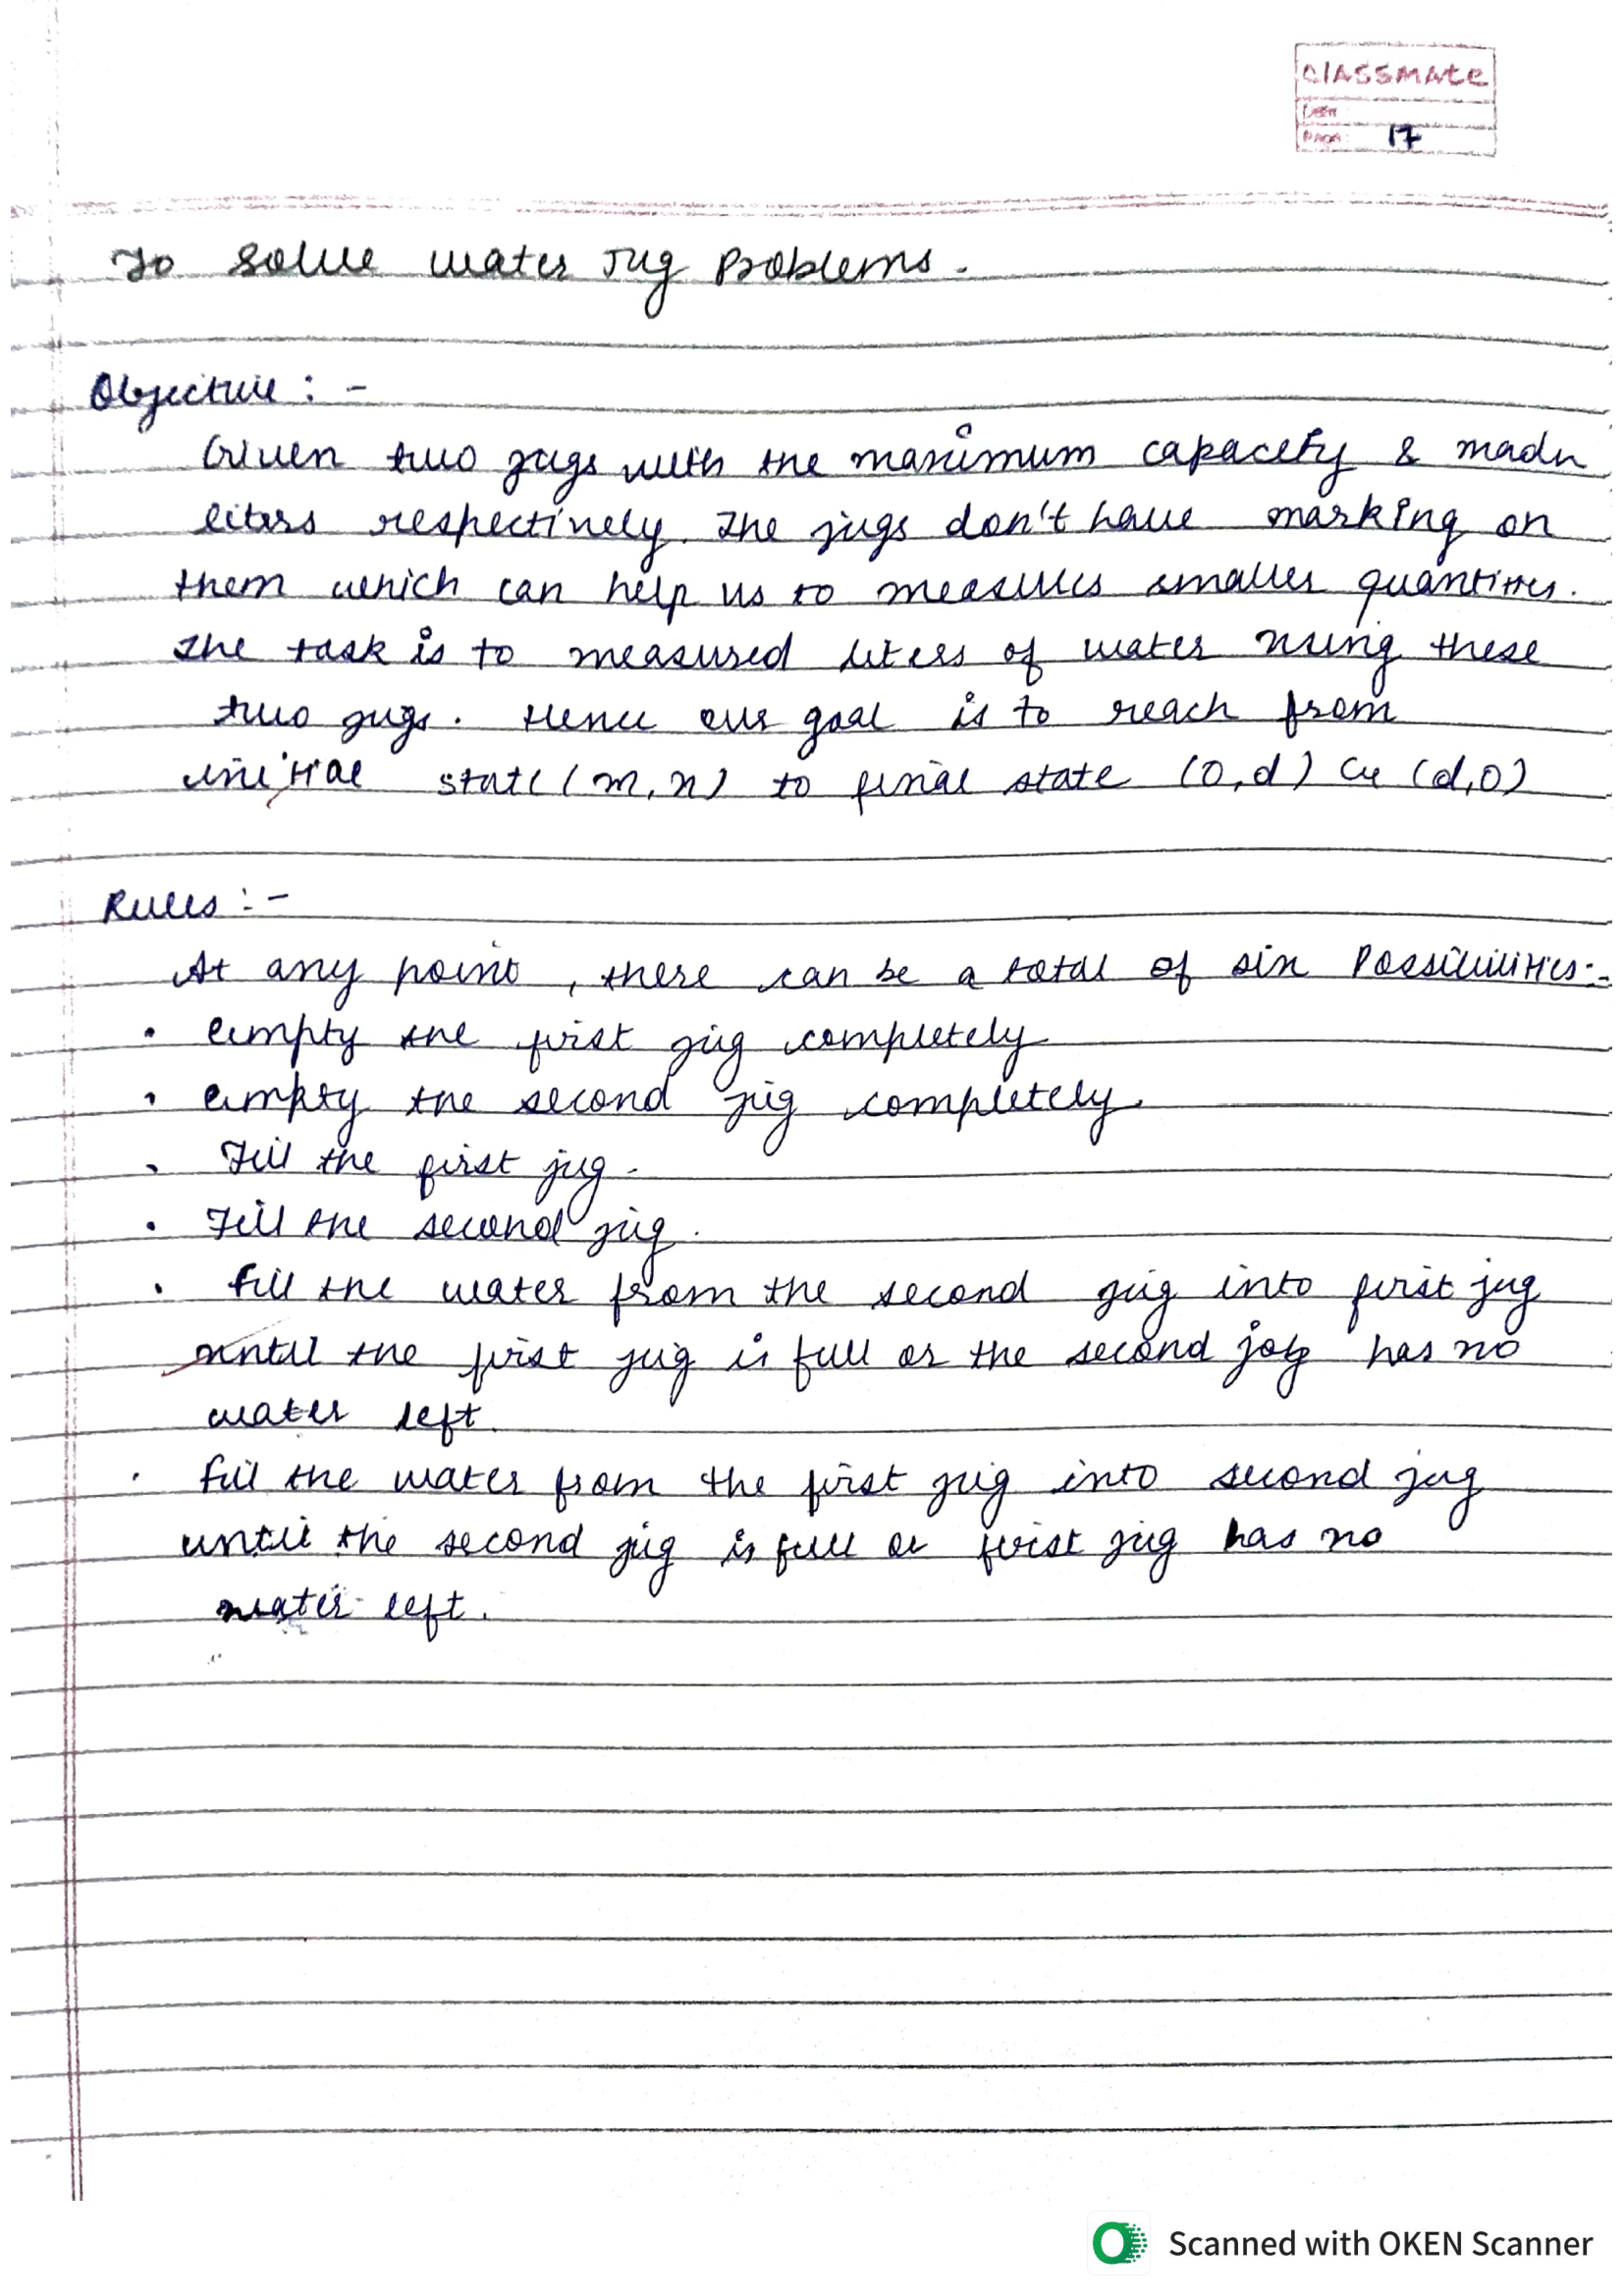 CLASSMATE
Date
Page: 17
To solve water Jug Problems.
Objective :-
Given two jugs with the maximum capacity & madn
liters respectively. The jugs don't have marking on
them which can help us to measures smaller quantities.
The task is to measured liters of water using these
two jugs. Hence our goal is to reach from
initial state (m, n) to final state (0,d) or (d,0)
Rules :-
At any point, there can be a total of six Possibilities:-
• empty the first jug completely
• empty the second jug completely.
• Fill the first jug.
• Fill the second jug.
• fill the water from the second jug into first jug
until the first jug is full or the second jog has no
water left.
• fill the water from the first jug into second jug
until the second jug is full or first jug has no
water left.
Scanned with OKEN Scanner